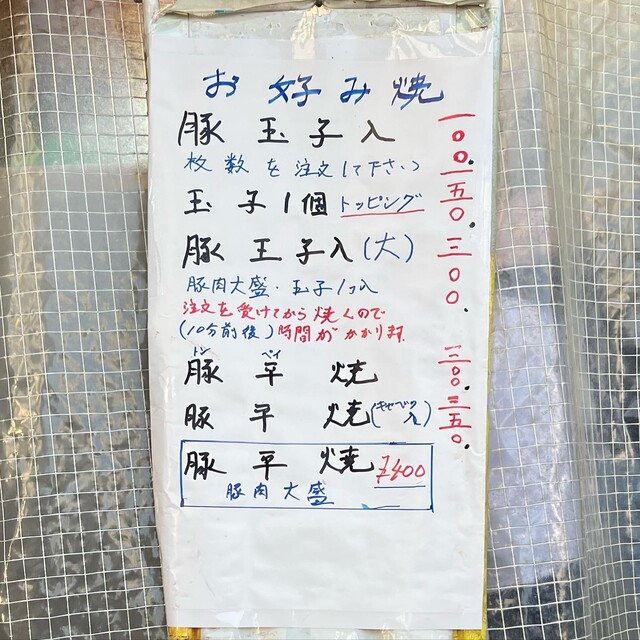 お好み焼
豚玉子入 一〇〇.
枚数を注文して下さい
玉子1個トッピング 一五〇.
豚玉子入(大) 三〇〇.
豚肉大盛・玉子1コ入
注文を受けてから焼くので
(10分前後)時間がかかります.
トン ペイ
豚平焼 二〇〇.
豚平焼(キャベツ入) 二五〇.
豚平焼 ¥400
豚肉大盛